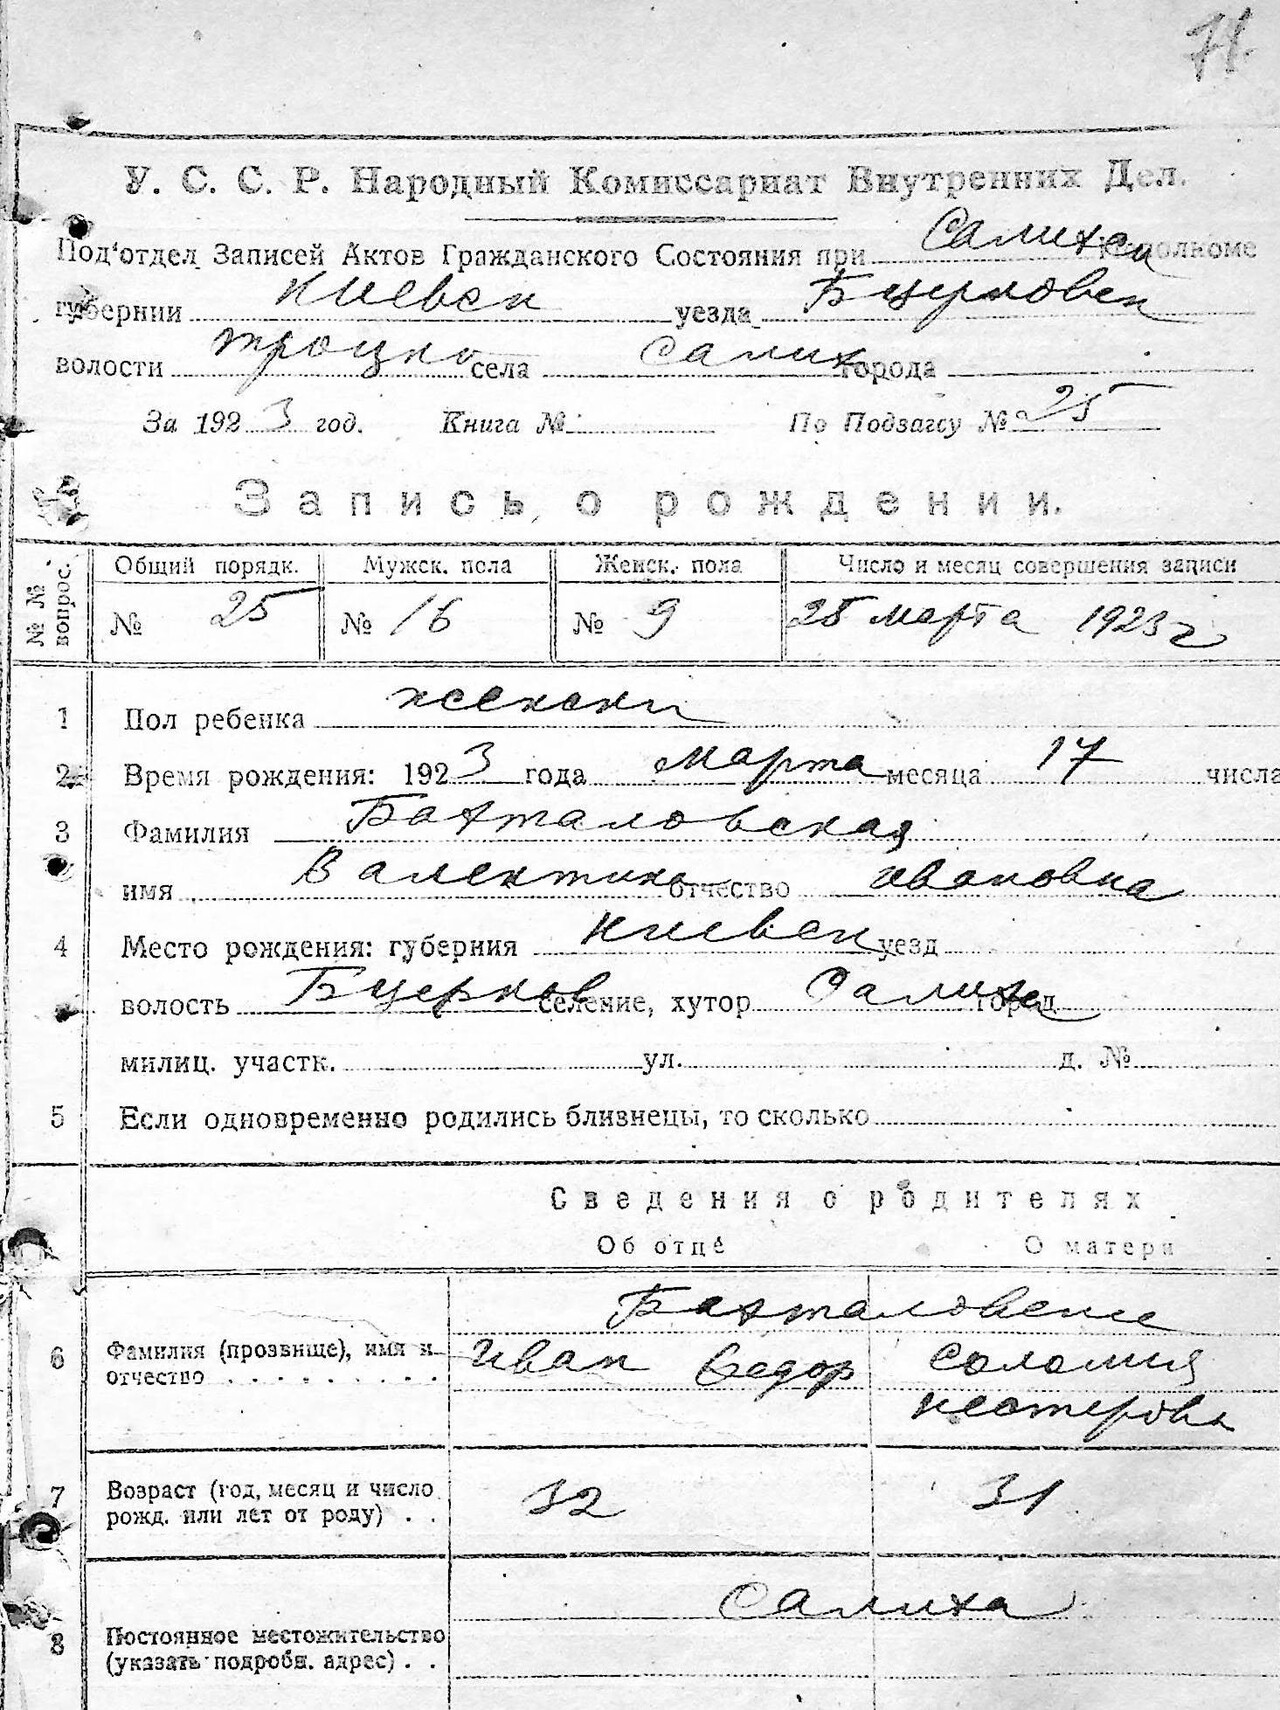 71.
У. С. С. Р. Народный Комиссариат Внутренних Дел.
Под'отдел Записей Актов Гражданского Состояния при Салихск исполкоме
губернии Киевск уезда Бцерковск
волости троцко села Салиха города
За 1923 год. Книга № По Подзагсу № 25
Запись о рождении.
№ № вопрос. Общий порядк. Мужск. пола Женск. пола Число и месяц совершения записи
№ 25 № 16 № 9 28 марта 1923 г
1 Пол ребенка женски
2 Время рождения: 1923 года марта месяца 17 числа
3 Фамилия Бахталовская
имя Валентина отчество Ивановна
4 Место рождения: губерния Киевск уезд
волость Бцерков селение, хутор Салиха город
милиц. участк. ул. д. №
5 Если одновременно родились близнецы, то сколько
Сведения о родителях
Об отце О матери
Бахталовские
6 Фамилия (прозвище), имя и Иван Федор Соломия
отчество . . . . . . . . . нестерова
7 Возраст (год, месяц и число 32 31
рожд. или лет от роду) . .
Салиха
8 Постоянное местожительство
(указать подробн. адрес) . .